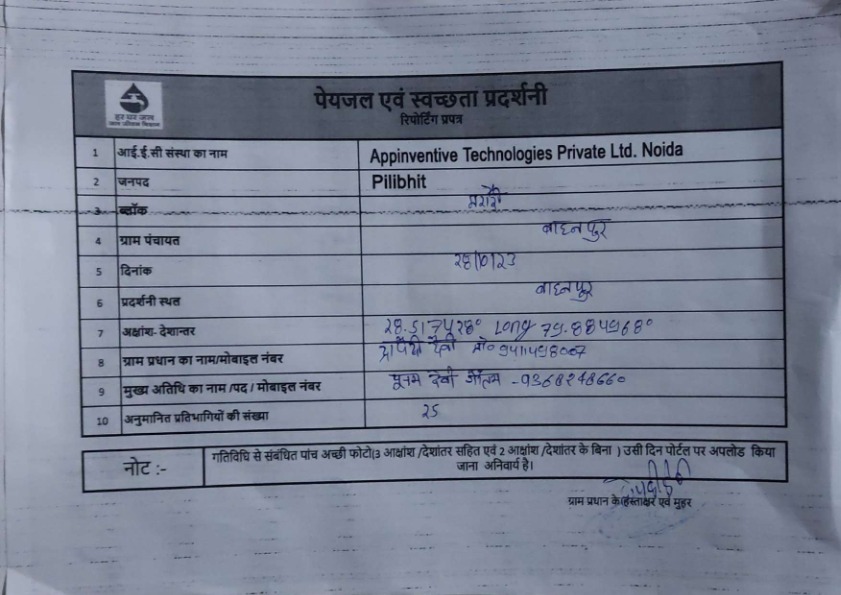 हर घर जल
जल जीवन मिशन
पेयजल एवं स्वच्छता प्रदर्शनी
रिपोर्टिंग प्रपत्र
1 आई.ई.सी संस्था का नाम Appinventive Technologies Private Ltd. Noida
2 जनपद Pilibhit
3 ब्लॉक मरौरी
4 ग्राम पंचायत
5 दिनांक
6 प्रदर्शनी स्थल
7 अक्षांश- देशान्तर 28.517428° Long 79.884968°
8 ग्राम प्रधान का नाम/मोबाइल नंबर देवी मो० 9411498007
9 मुख्य अतिथि का नाम /पद / मोबाइल नंबर पूनम देवी गौतम - 9368248660
10 अनुमानित प्रतिभागियों की संख्या 25
नोट :- गतिविधि से संबंधित पांच अच्छी फोटो(3 आक्षांश /देशांतर सहित एवं 2 आक्षांश /देशांतर के बिना ) उसी दिन पोर्टल पर अपलोड किया
जाना अनिवार्य है।
ग्राम प्रधान के हस्ताक्षर एवं मुहर